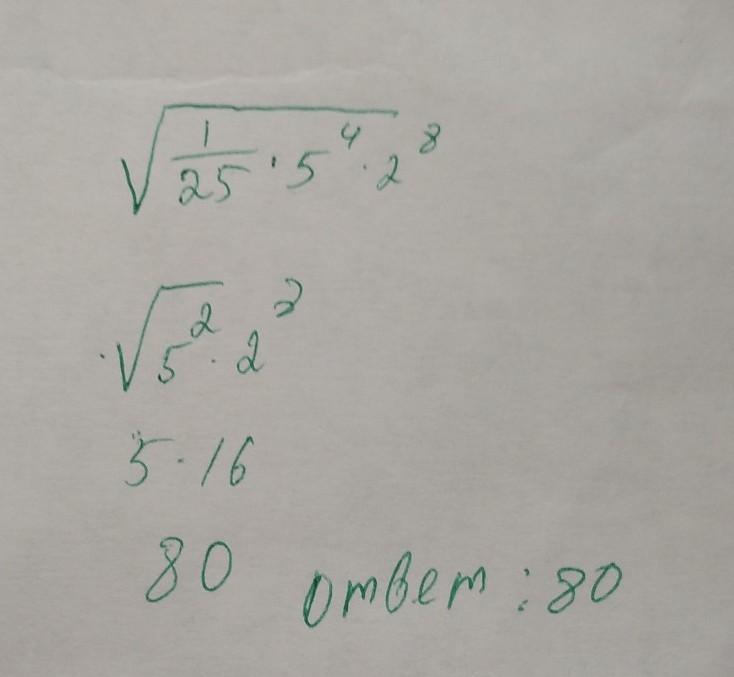 √(1/25 · 5⁴ · 2⁸
√5² · 2²
5 · 16
80 ответ : 80